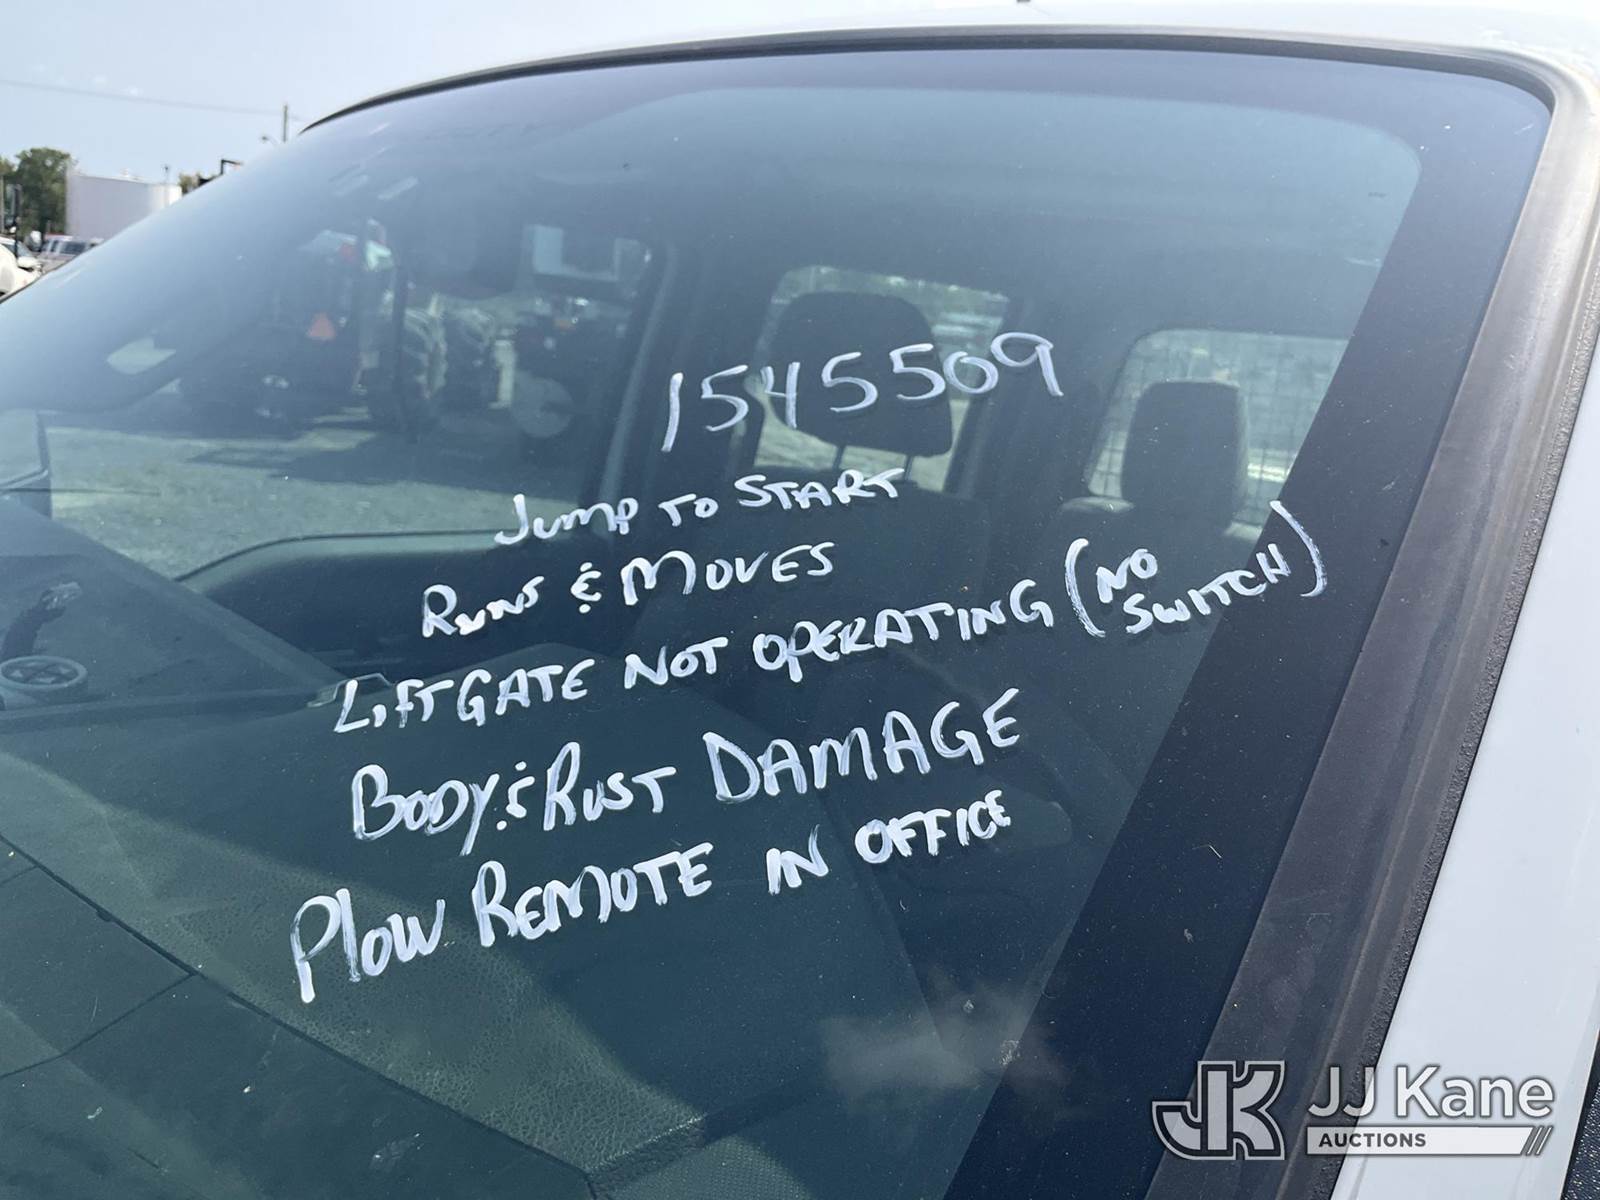 1545509
Jump to START
Runs & MOVES
LiftGATE NOT OPERATING (NO SWITCH)
BODY & RUST DAMAGE
Plow REMOTE IN OFFICE
JK JJ Kane
AUCTIONS